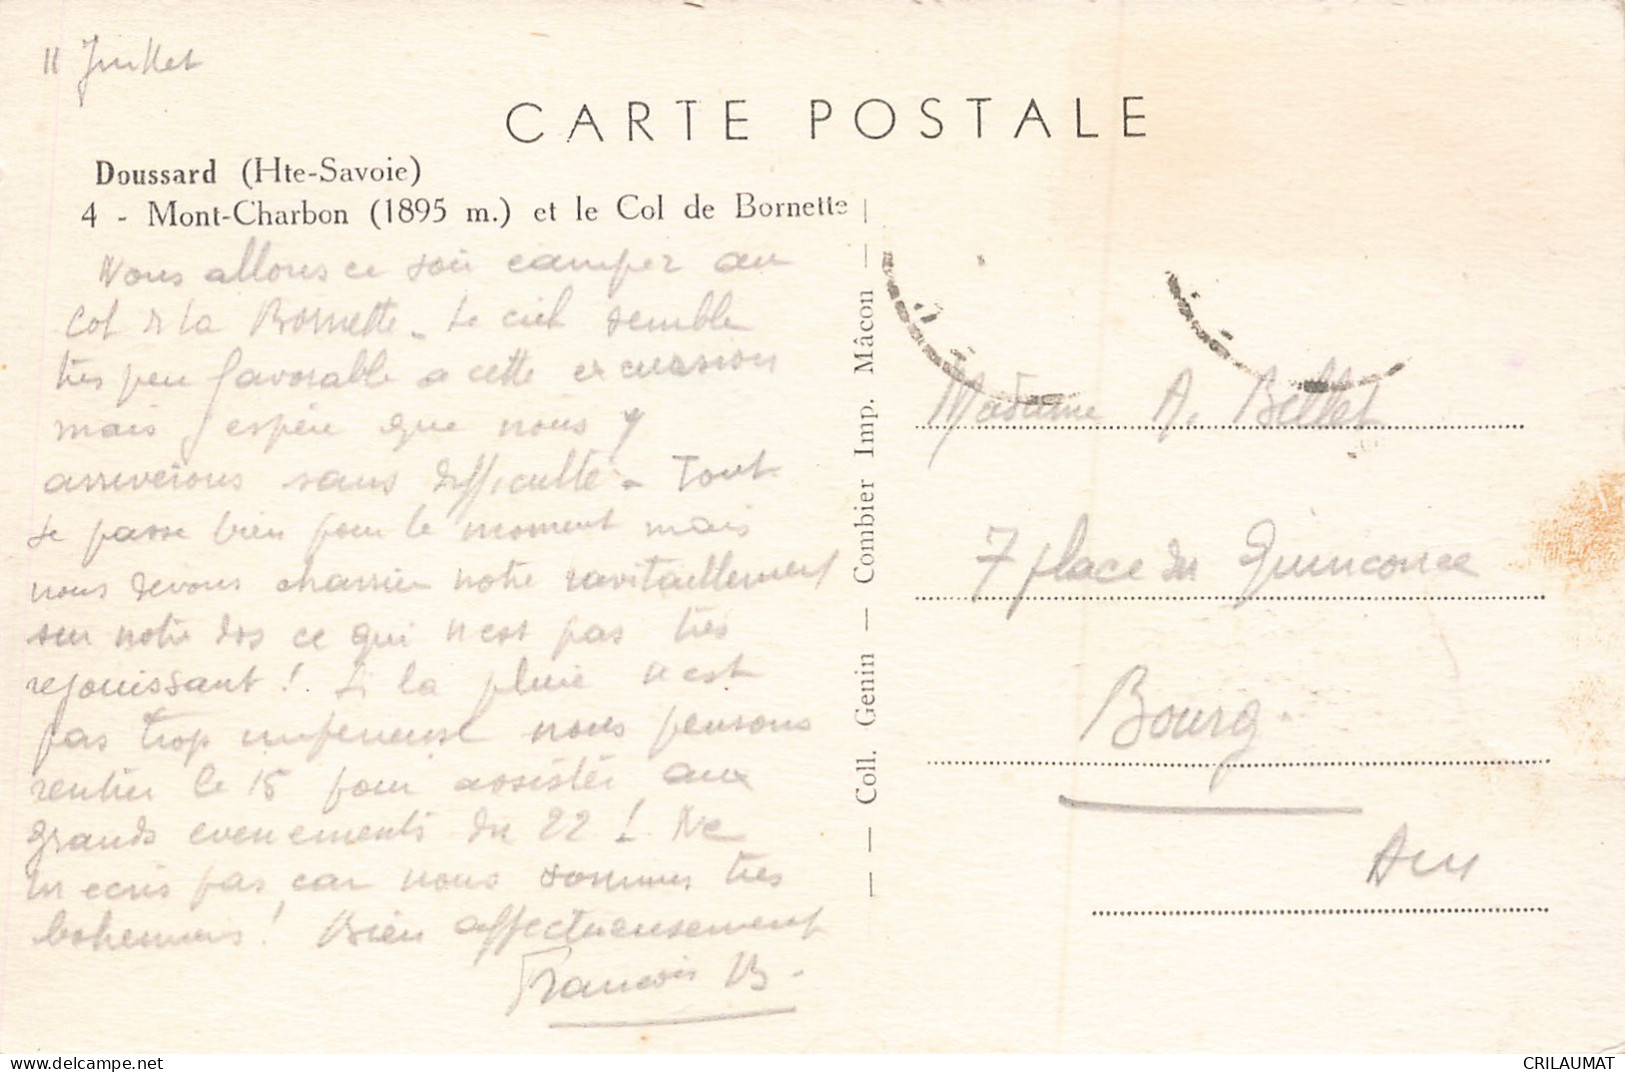 11 Juillet
CARTE POSTALE
Doussard (Hte-Savoie)
4 - Mont-Charbon (1895 m.) et le Col de Bornette
Nous allons ce soir camper au
Col de la Bornette - Le ciel semble
très peu favorable a cette excursion
mais j'espère que nous y
arriverons sans difficulté - Tout
se passe bien pour le moment mais
nous devons charrier notre ravitaillement
sur notre dos ce qui n'est pas très
rejouissant ! Si la pluie n'est
pas trop nous pensons
rentrer le 15 pour assister aux
grands evenements du 22 ! Ne
m ecris pas car nous sommes très
bohemiens ! Bien affectueusement
François B.
— Coll. Genin — Combier Imp. Mâcon —
Madame A. Billet
7 place du Quinconce
Bourg.
Ain
www.delcampe.net
CRILAUMAT